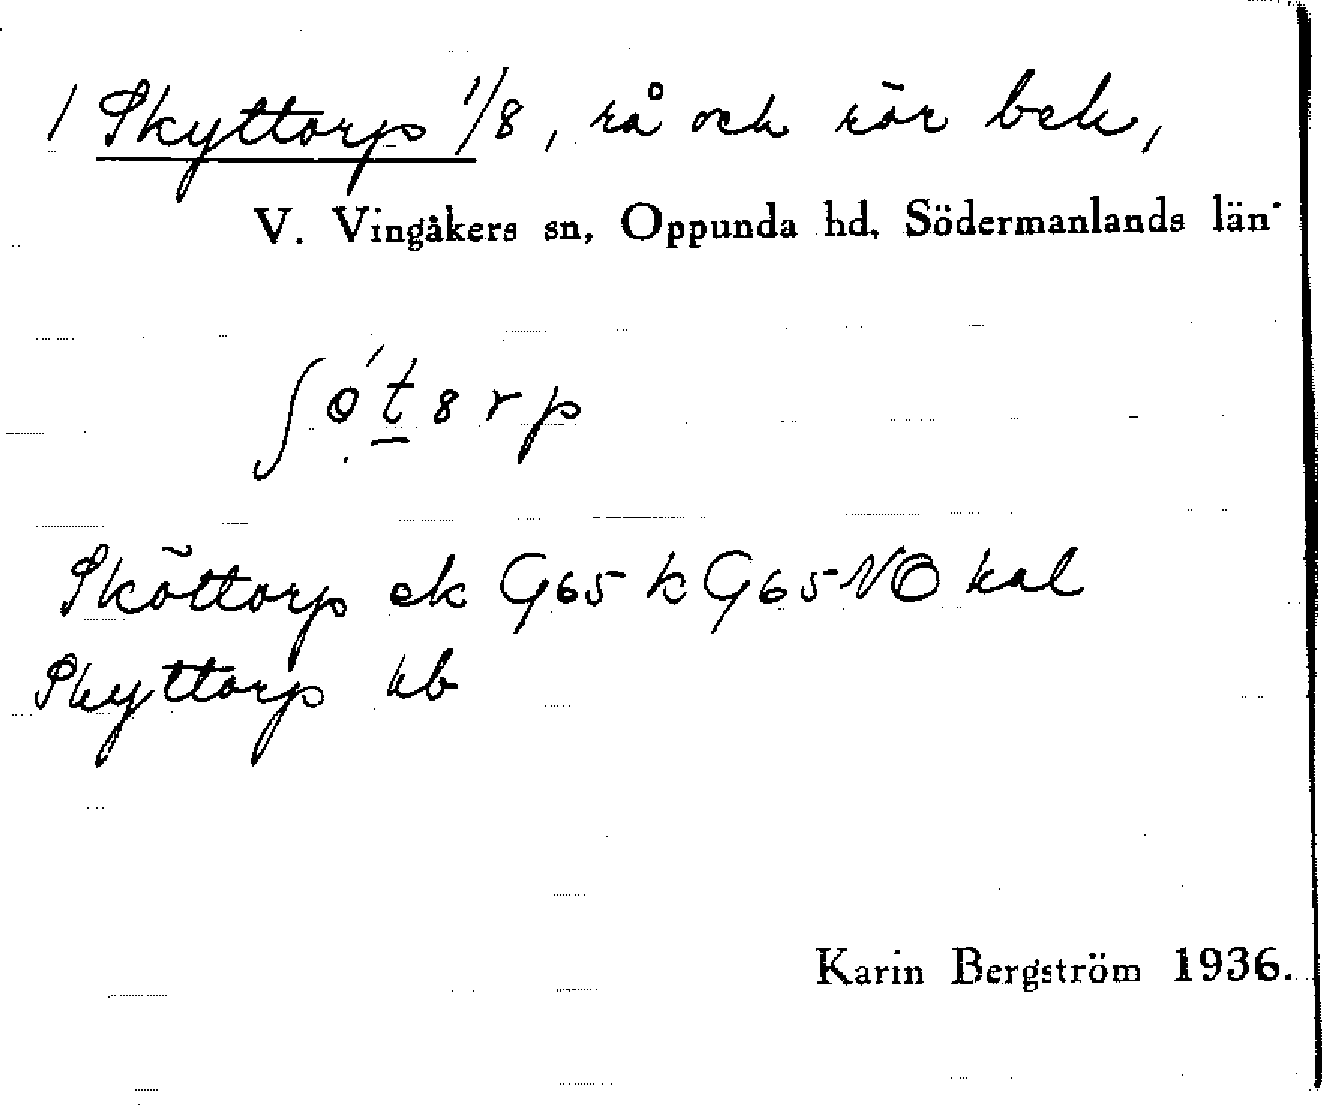 1 Skyttorp 1/8, rå och rör bek,
V. Vingåkers sn, Oppunda hd, Södermanlands län
ʃø´t̲8rp
Sköttorp ek G65 k G65 NO kal
Skyttorp kb
Karin Bergström 1936.